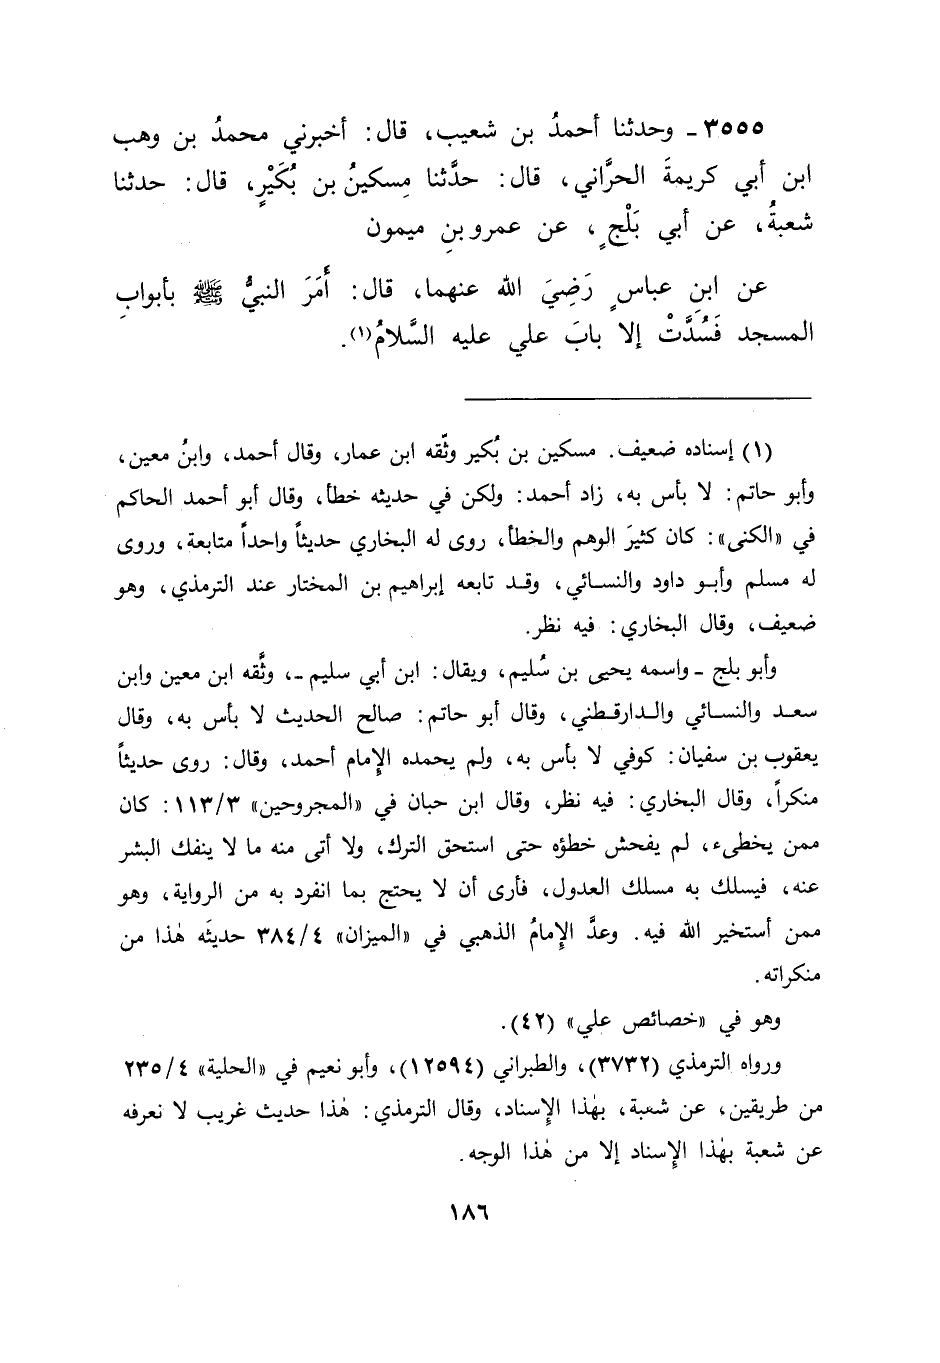 ٣٥٥٥ ـ وحدثنا أحمدُ بن شعيب، قال: أخبرني محمدُ بن وهب
ابن أبي كريمةَ الحرَّاني، قال: حدَّثنا مِسكينُ بن بُكَيْرٍ، قال: حدثنا
شعبةُ، عن أبي بَلْجٍ، عن عمرو بنِ ميمون
عن ابنِ عباسٍ رَضِيَ الله عنهما، قال: أَمَرَ النبيُّ ﷺ بأبوابِ
المسجد فَسُدَّتْ إلا بابَ علي عليه السَّلامُ(١).
(١) إسناده ضعيف. مسكين بن بُكير وثَّقه ابن عمار، وقال أحمد، وابنُ معين،
وأبو حاتم: لا بأس به، زاد أحمد: ولكن في حديثه خطأ، وقال أبو أحمد الحاكم
في «الكنى»: كان كثيرَ الوهم والخطأ، روى له البخاري حديثاً واحداً متابعة، وروى
له مسلم وأبو داود والنسائي، وقد تابعه إبراهيم بن المختار عند الترمذي، وهو
ضعيف، وقال البخاري: فيه نظر.
وأبو بلج ـ واسمه يحيى بن سُليم، ويقال: ابن أبي سليم ـ، وثَّقه ابن معين وابن
سعد والنسائي والدارقطني، وقال أبو حاتم: صالح الحديث لا بأس به، وقال
يعقوب بن سفيان: كوفي لا بأس به، ولم يحمده الإِمام أحمد، وقال: روى حديثاً
منكراً، وقال البخاري: فيه نظر، وقال ابن حبان في «المجروحين» ١١٣/٣: كان
ممن يخطىء، لم يفحش خطؤه حتى استحق الترك، ولا أتى منه ما لا ينفك البشر
عنه، فيسلك به مسلك العدول، فأرى أن لا يحتج بما انفرد به من الرواية، وهو
ممن أستخير الله فيه. وعدَّ الإِمامُ الذهبي في «الميزان» ٣٨٤/٤ حديثَه هٰذا من
منكراته.
وهو في «خصائص علي» (٤٢).
ورواه الترمذي (٣٧٣٢)، والطبراني (١٢٥٩٤)، وأبو نعيم في «الحلية» ٢٣٥/٤
من طريقين، عن شعبة، بهٰذا الإِسناد، وقال الترمذي: هٰذا حديث غريب لا نعرفه
عن شعبة بهٰذا الإِسناد إلا من هٰذا الوجه.
١٨٦